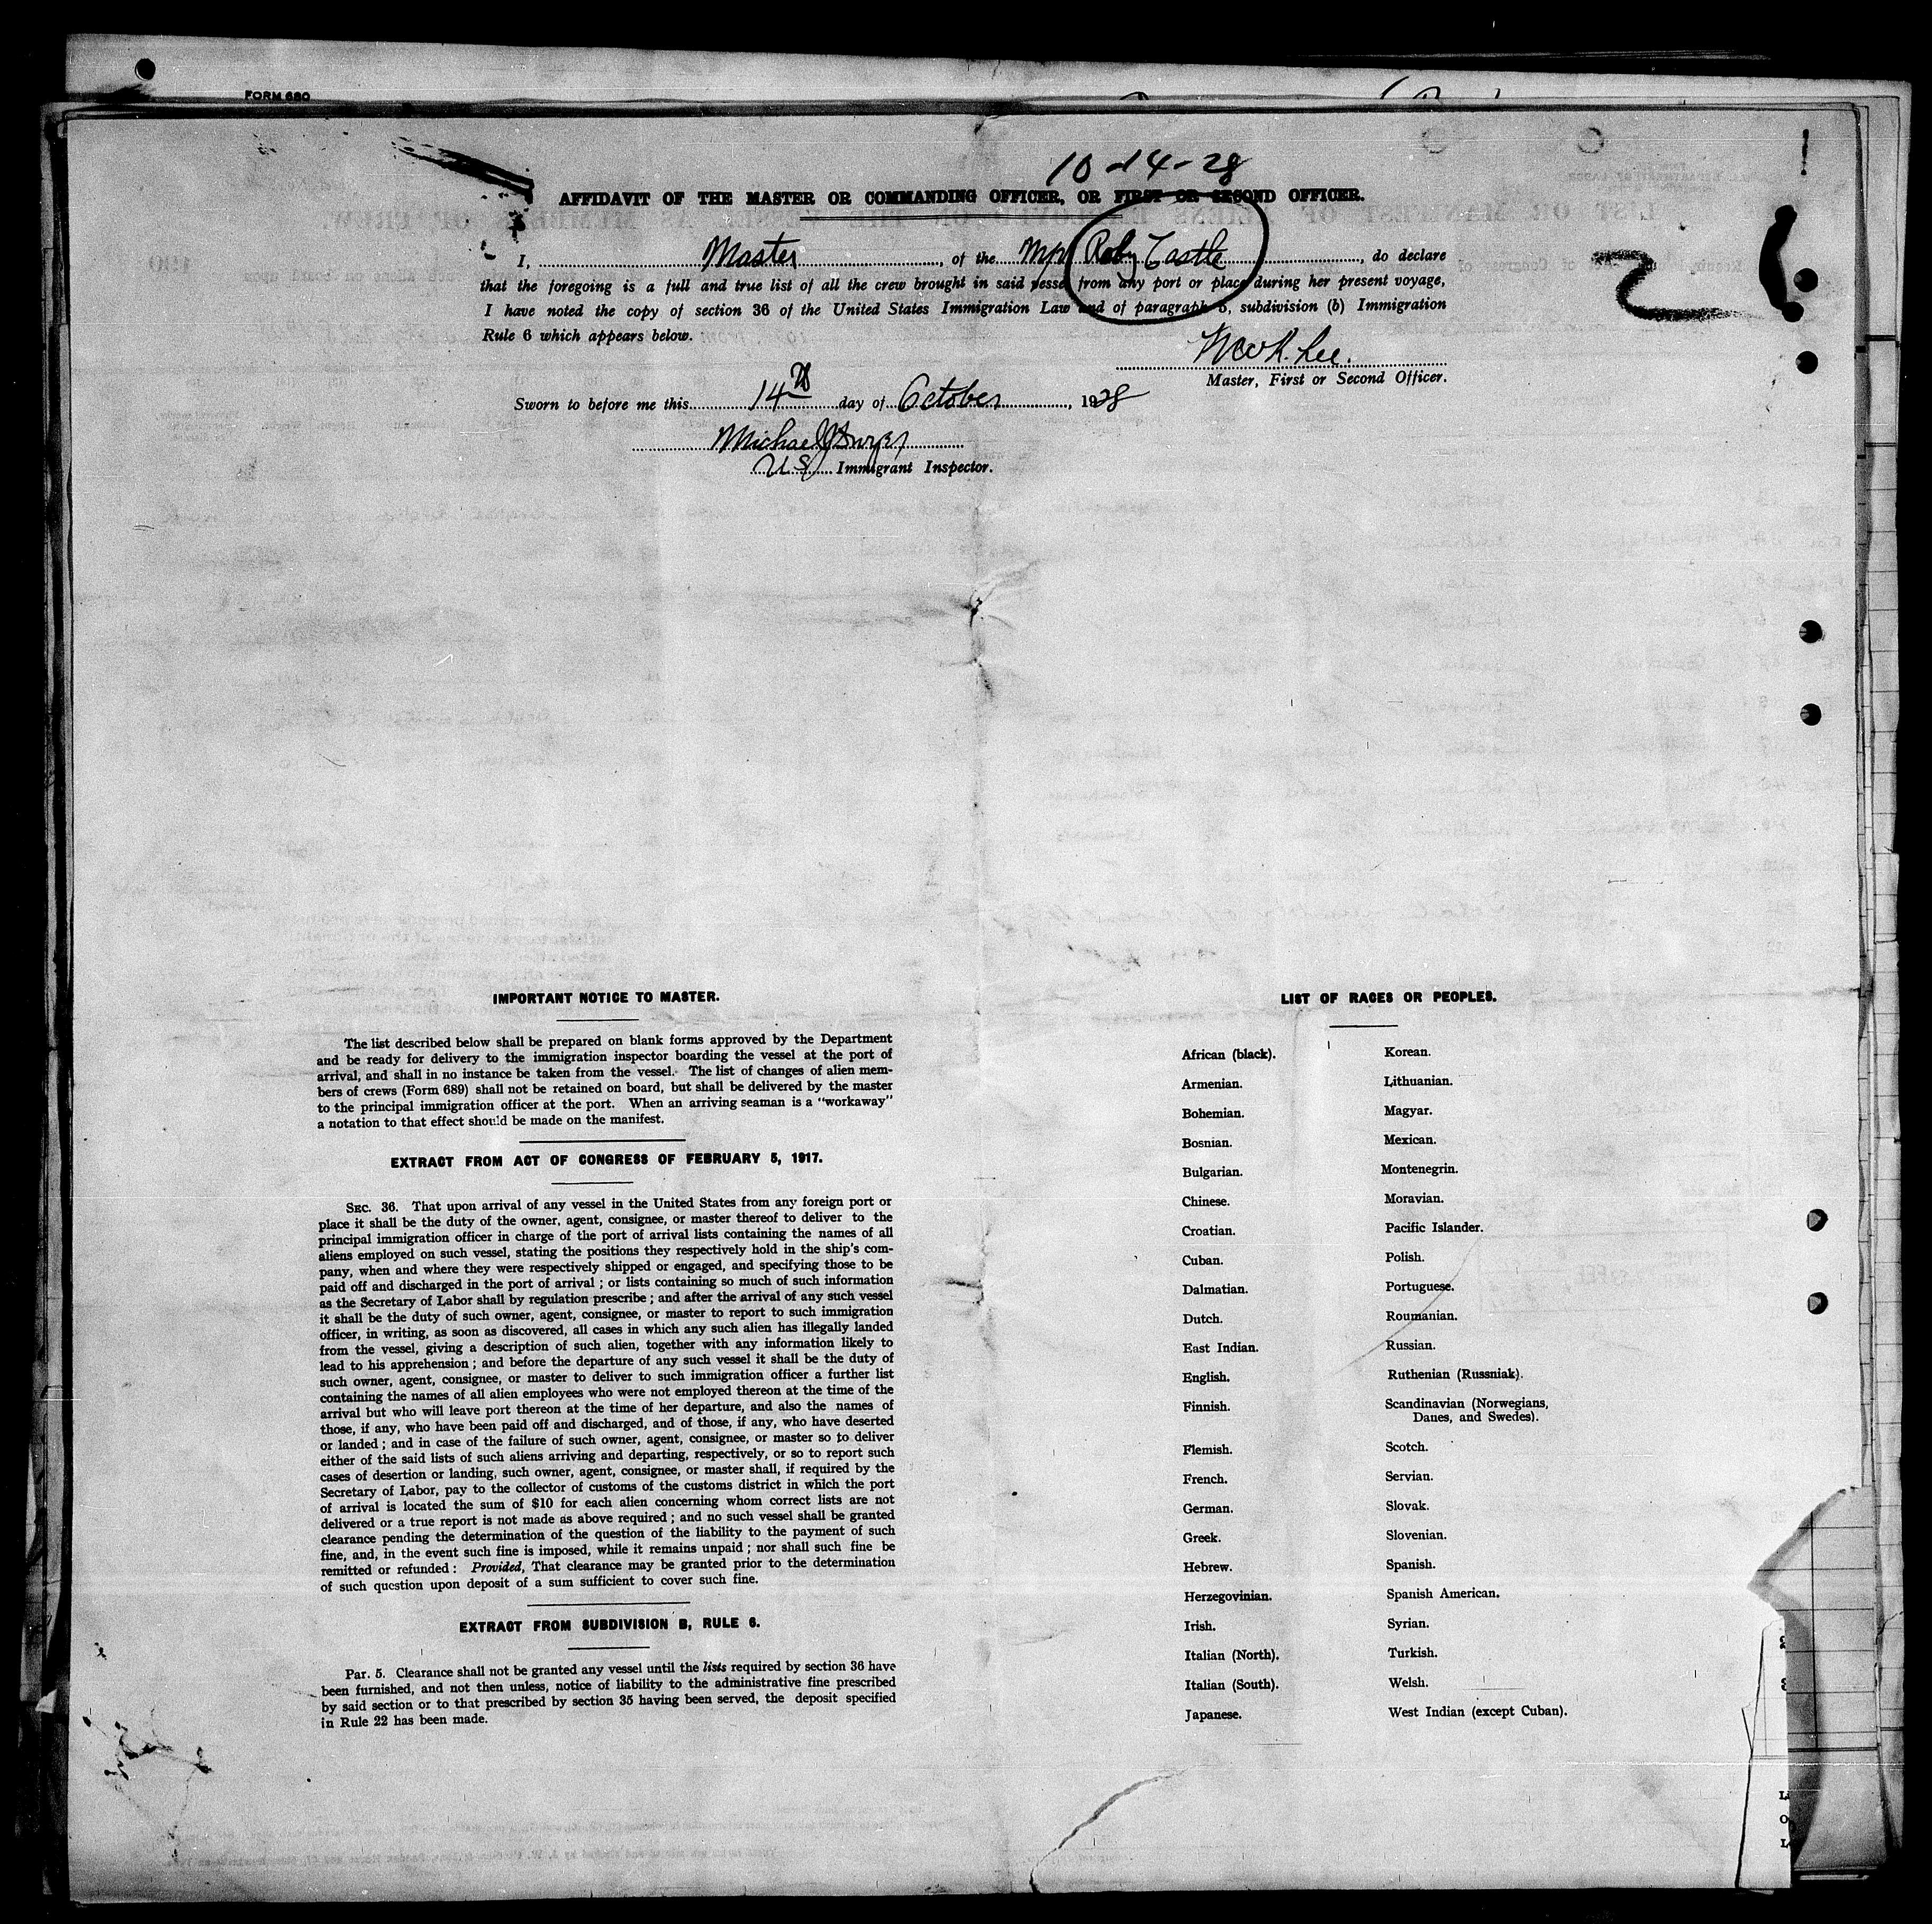 FORM 680
10-14-28
AFFIDAVIT OF THE MASTER OR COMMANDING OFFICER, OR FIRST OR SECOND OFFICER.
I, Master, of the M/V Roby Castle, do declare
that the foregoing is a full and true list of all the crew brought in said vessel from any port or place during her present voyage,
I have noted the copy of section 36 of the United States Immigration Law and of paragraph 5, subdivision (b) Immigration
Rule 6 which appears below.
Lee.
Master, First or Second Officer.
Sworn to before me this 14th day of October, 1928
Michael
US Immigrant Inspector.
IMPORTANT NOTICE TO MASTER.
The list described below shall be prepared on blank forms approved by the Department
and be ready for delivery to the immigration inspector boarding the vessel at the port of
arrival, and shall in no instance be taken from the vessel. The list of changes of alien mem-
bers of crews (Form 689) shall not be retained on board, but shall be delivered by the master
to the principal immigration officer at the port. When an arriving seaman is a "workaway"
a notation to that effect should be made on the manifest.
EXTRACT FROM ACT OF CONGRESS OF FEBRUARY 5, 1917.
SEC. 36. That upon arrival of any vessel in the United States from any foreign port or
place it shall be the duty of the owner, agent, consignee, or master thereof to deliver to the
principal immigration officer in charge of the port of arrival lists containing the names of all
aliens employed on such vessel, stating the positions they respectively hold in the ship's com-
pany, when and where they were respectively shipped or engaged, and specifying those to be
paid off and discharged in the port of arrival; or lists containing so much of such information
as the Secretary of Labor shall by regulation prescribe; and after the arrival of any such vessel
it shall be the duty of such owner, agent, consignee, or master to report to such immigration
officer, in writing, as soon as discovered, all cases in which any such alien has illegally landed
from the vessel, giving a description of such alien, together with any information likely to
lead to his apprehension; and before the departure of any such vessel it shall be the duty of
such owner, agent, consignee, or master to deliver to such immigration officer a further list
containing the names of all alien employees who were not employed thereon at the time of the
arrival but who will leave port thereon at the time of her departure, and also the names of
those, if any, who have been paid off and discharged, and of those, if any, who have deserted
or landed; and in case of the failure of such owner, agent, consignee, or master so to deliver
either of the said lists of such aliens arriving and departing, respectively, or so to report such
cases of desertion or landing, such owner, agent, consignee, or master shall, if required by the
Secretary of Labor, pay to the collector of customs of the customs district in which the port
of arrival is located the sum of $10 for each alien concerning whom correct lists are not
delivered or a true report is not made as above required; and no such vessel shall be granted
clearance pending the determination of the question of the liability to the payment of such
fine, and, in the event such fine is imposed, while it remains unpaid; nor shall such fine be
remitted or refunded: Provided, That clearance may be granted prior to the determination
of such question upon deposit of a sum sufficient to cover such fine.
EXTRACT FROM SUBDIVISION B, RULE 6.
Par. 5. Clearance shall not be granted any vessel until the lists required by section 36 have
been furnished, and not then unless, notice of liability to the administrative fine prescribed
by said section or to that prescribed by section 35 having been served, the deposit specified
in Rule 22 has been made.
LIST OF RACES OR PEOPLES.
African (black).
Armenian.
Bohemian.
Bosnian.
Bulgarian.
Chinese.
Croatian.
Cuban.
Dalmatian.
Dutch.
East Indian.
English.
Finnish.
Flemish.
French.
German.
Greek.
Hebrew.
Herzegovinian.
Irish.
Italian (North).
Italian (South).
Japanese.
Korean.
Lithuanian.
Magyar.
Mexican.
Montenegrin.
Moravian.
Pacific Islander.
Polish.
Portuguese.
Roumanian.
Russian.
Ruthenian (Russniak).
Scandinavian (Norwegians,
Danes, and Swedes).
Scotch.
Servian.
Slovak.
Slovenian.
Spanish.
Spanish American.
Syrian.
Turkish.
Welsh.
West Indian (except Cuban).